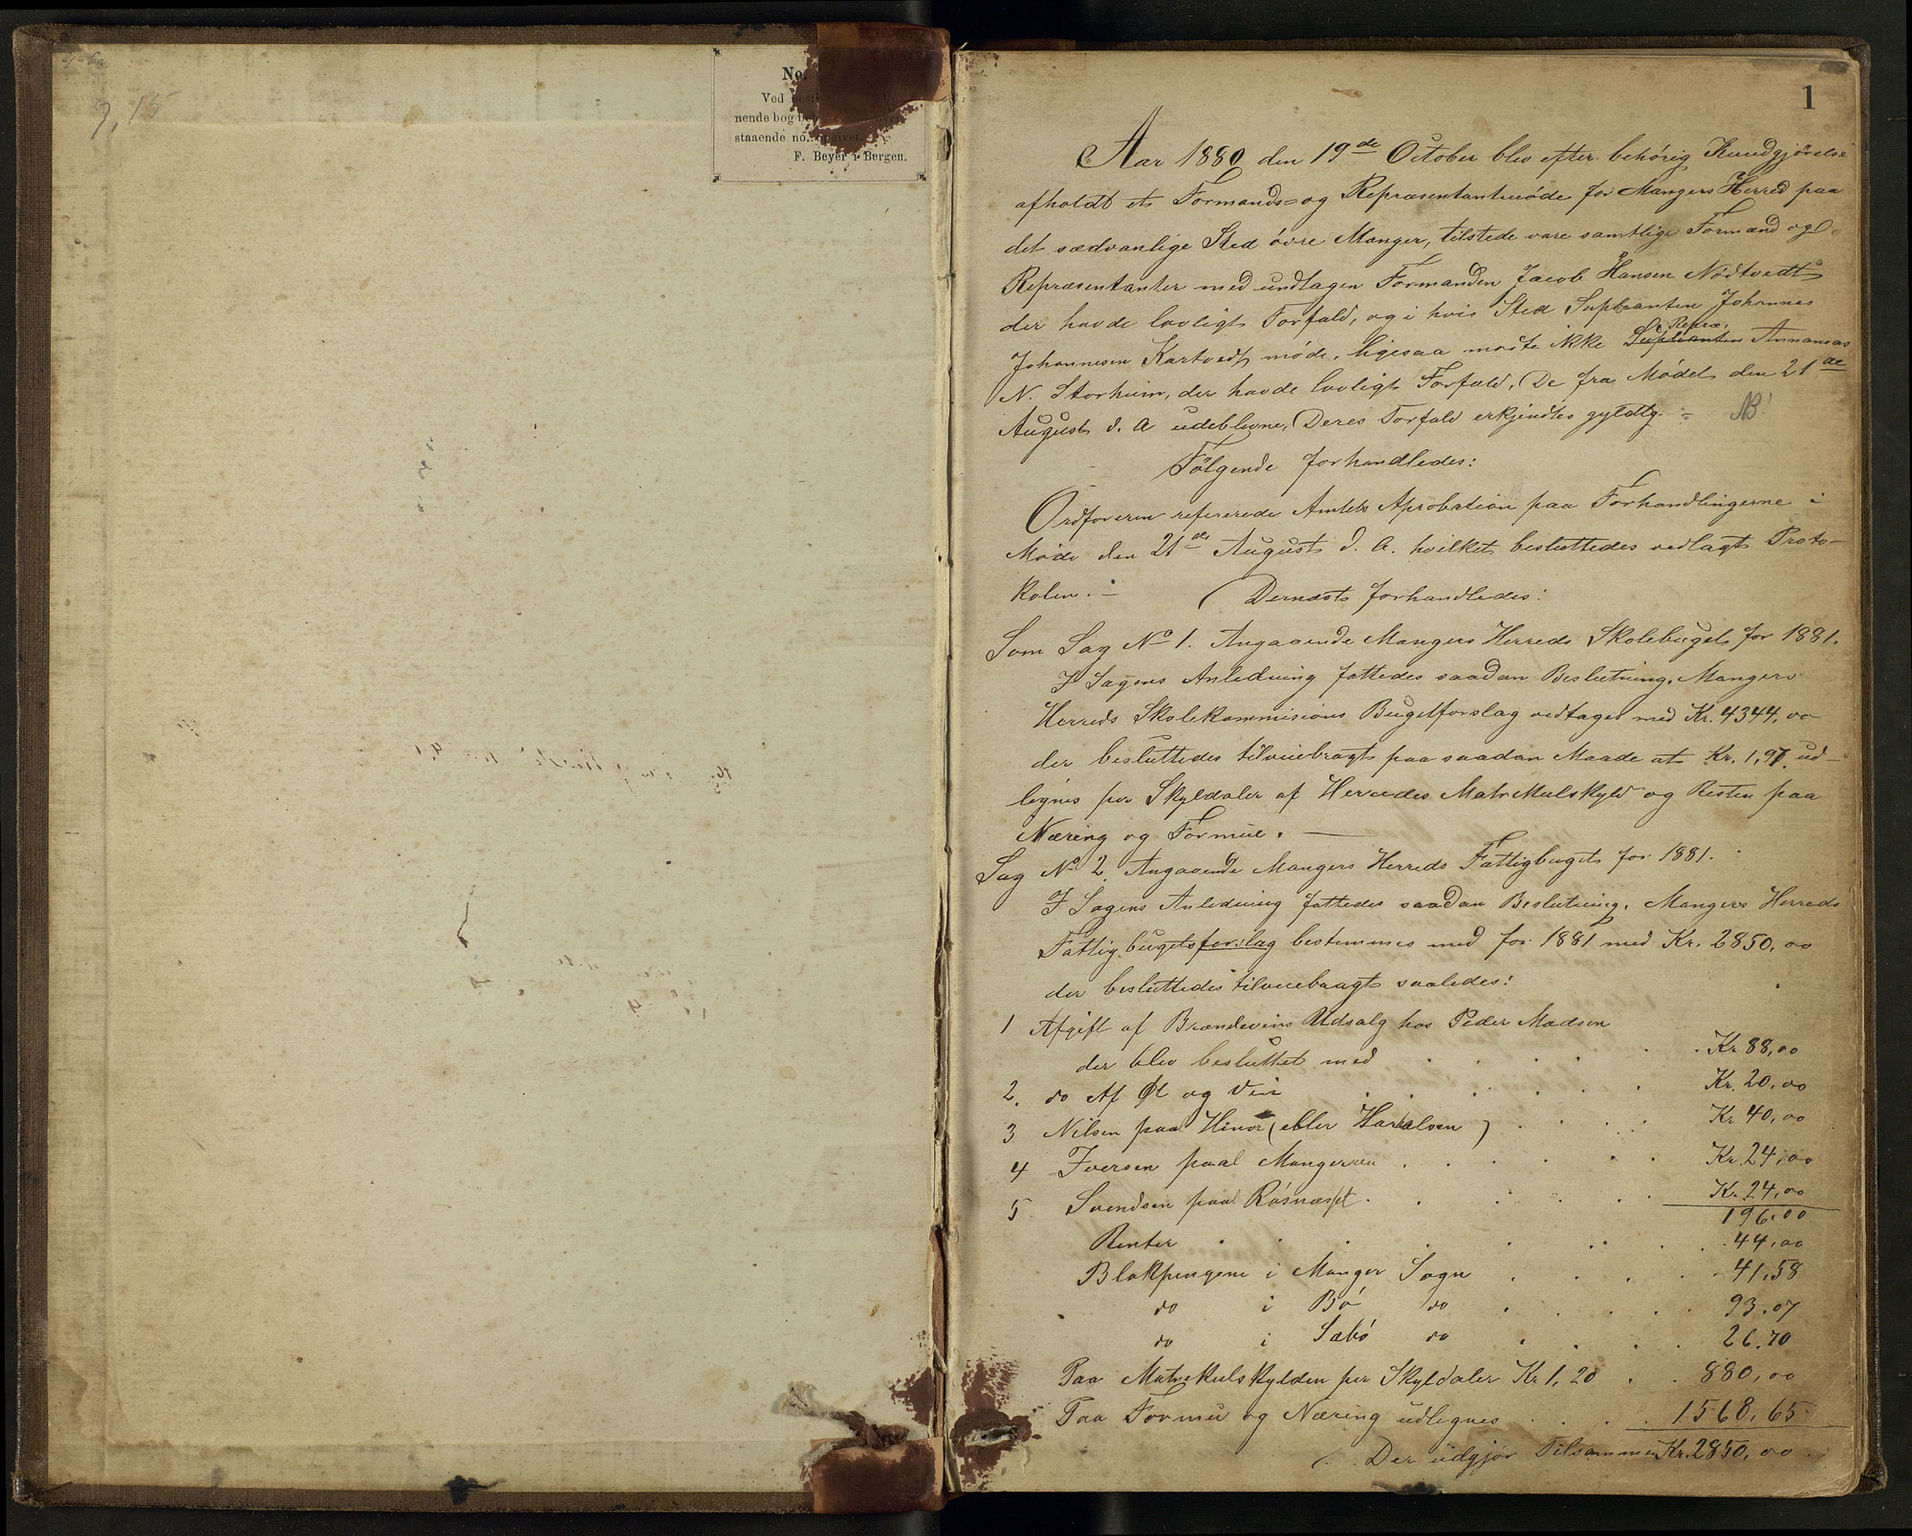 7,15
No.
Ved
nende bog
staaende no. opgivet.
F. Beyer i Bergen.
1
Aar 1880 den 19de October blev efter behörig Kundgjörelse
afholdt et Formands- og Repræsentantmöde for Mangers Herred paa
det sædvanlige Sted övre Manger, tilstede vare samtlige Formænd og
Repræsentanter med undtagen Formanden Jacob Hansen Nödtvedt
der havde lovligt Forfald, og i hvis Sted Supleanten Johannes
Johannesen Kartvedt möde, ligesaa mödte ikke Supleanten Repræ. Annanias
N. Storheim, der havde lovligt Forfald, De fra Mödet den 21de
August d. A udeblevne, Deres Forfald erkjendtes gyldig. NB!
Fölgende forhandledes:
Ordföreren refererede Amtets Aprobation paa Forhandlingerne i
Möde den 21de August d. A. hvilket besluttedes vedlagt Proto-
kolen. - Dernæst forhandledes:
Som Sag No 1. Angaaende Mangers Herreds Skolebuget for 1881.
I Sagens Anledning fattedes saadan Beslutning. Mangers
Herreds Skolekommisions Bugetforslag vedtages med Kr. 4344,00
der besluttedes tilveiebragt paa saadan Maade at Kr. 1,97 ud-
lignes per Skyldaler af Herredes Matrikulskyld og Resten paa
Næring og Formue. -
Sag No 2. Angaaende Mangers Herreds Fattigbuget for 1881.
I Sagens Anledning fattedes saadan Beslutning. Mangers Herreds
Fattigbugetsforslag bestemmes med for 1881 med Kr. 2850,00
der besluttedes tilveiebragt saaledes:
1 Afgift af Brændevins Udsalg hos Peder Madsen
der blev besluttet med Kr 88,00
2. do Af Øl og Vin Kr. 20,00
3 Nilsen paa Hinor (eller Haraldsen) Kr 40,00
4 Iversen paal Mangeren Kr. 24,00
5 Svendsen paal Rosnæs Kr. 24,00
196,00
Renter 44,00
Blokpengene i Manger Sogn 41,58
do i Bö do 93.07
do i Sæbö do 26.70
Paa Matrikulskylden per Skyldaler Kr 1,20 880,00
Paa Formue og Næring udlignes 1568,65
Der udgjör Tilsammen Kr. 2850,00